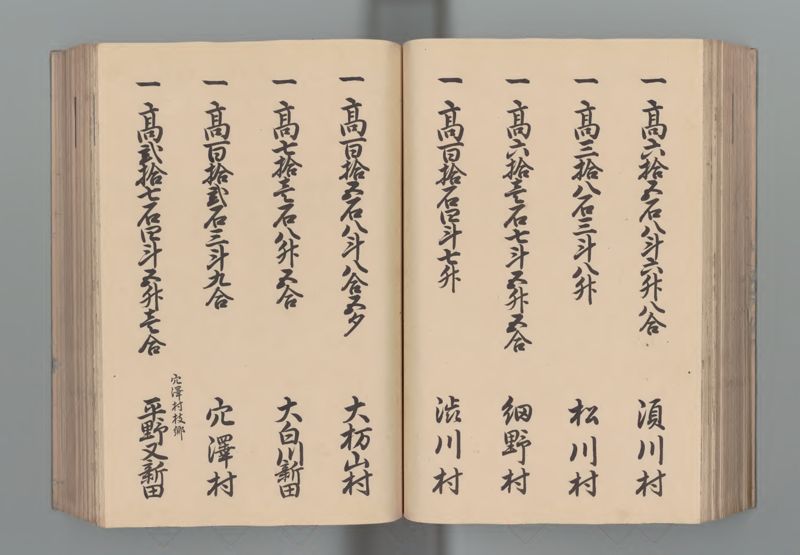 一 高六拾五石八斗六升八合 須川村
一 高三拾八石三斗八升 松川村
一 高六拾壱石七斗五升五合 細野村
一 高百拾石四斗七升 渋川村
一 高百拾五石八斗八合五夕 大栃山村
一 高七拾壱石八升五合 大白川新田
一 高百拾弐石三斗九合 穴澤村
穴澤村枝郷
一 高弐拾七石四斗五升壱合 平野又新田